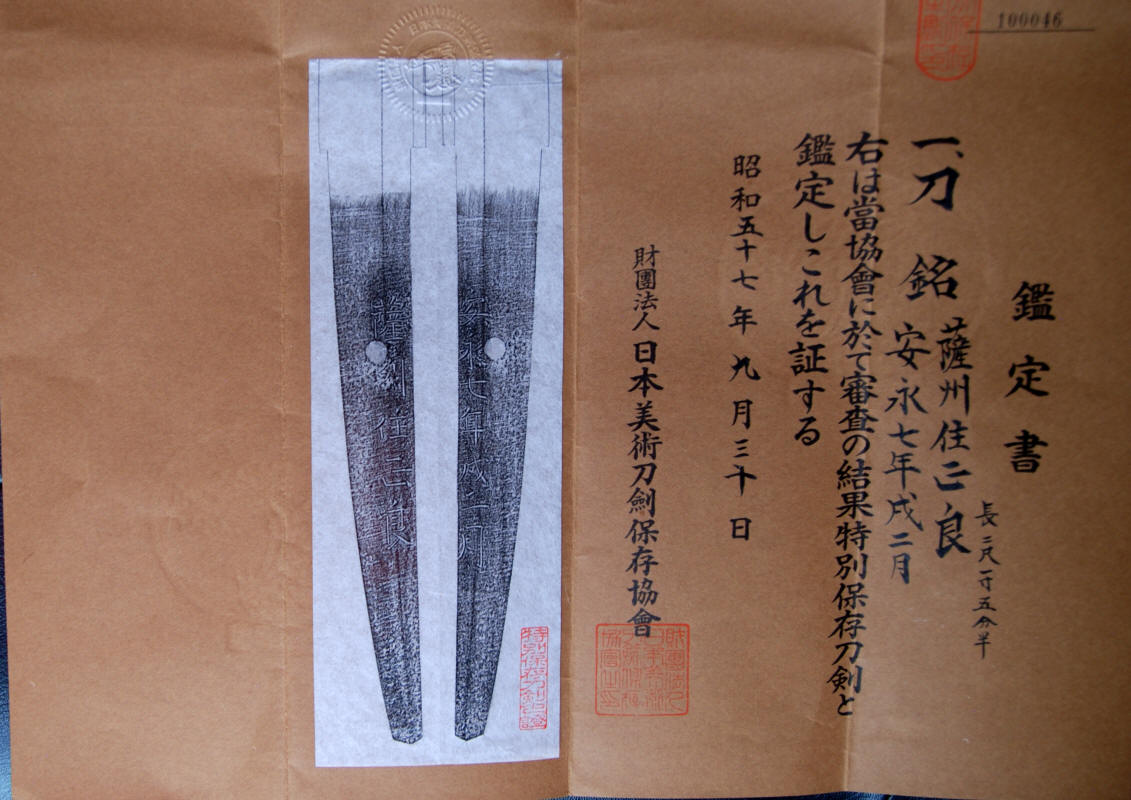 100046
鑑定書
長二尺一寸五分半
一、刀 銘 薩州住正良
安永七年戌二月
右は當協會に於て審査の結果特別保存刀剣と
鑑定しこれを証する
昭和五十七年九月三十日
財團法人日本美術刀劍保存協會
安永七年戌二月
薩州住正良
特別保存刀剣之證